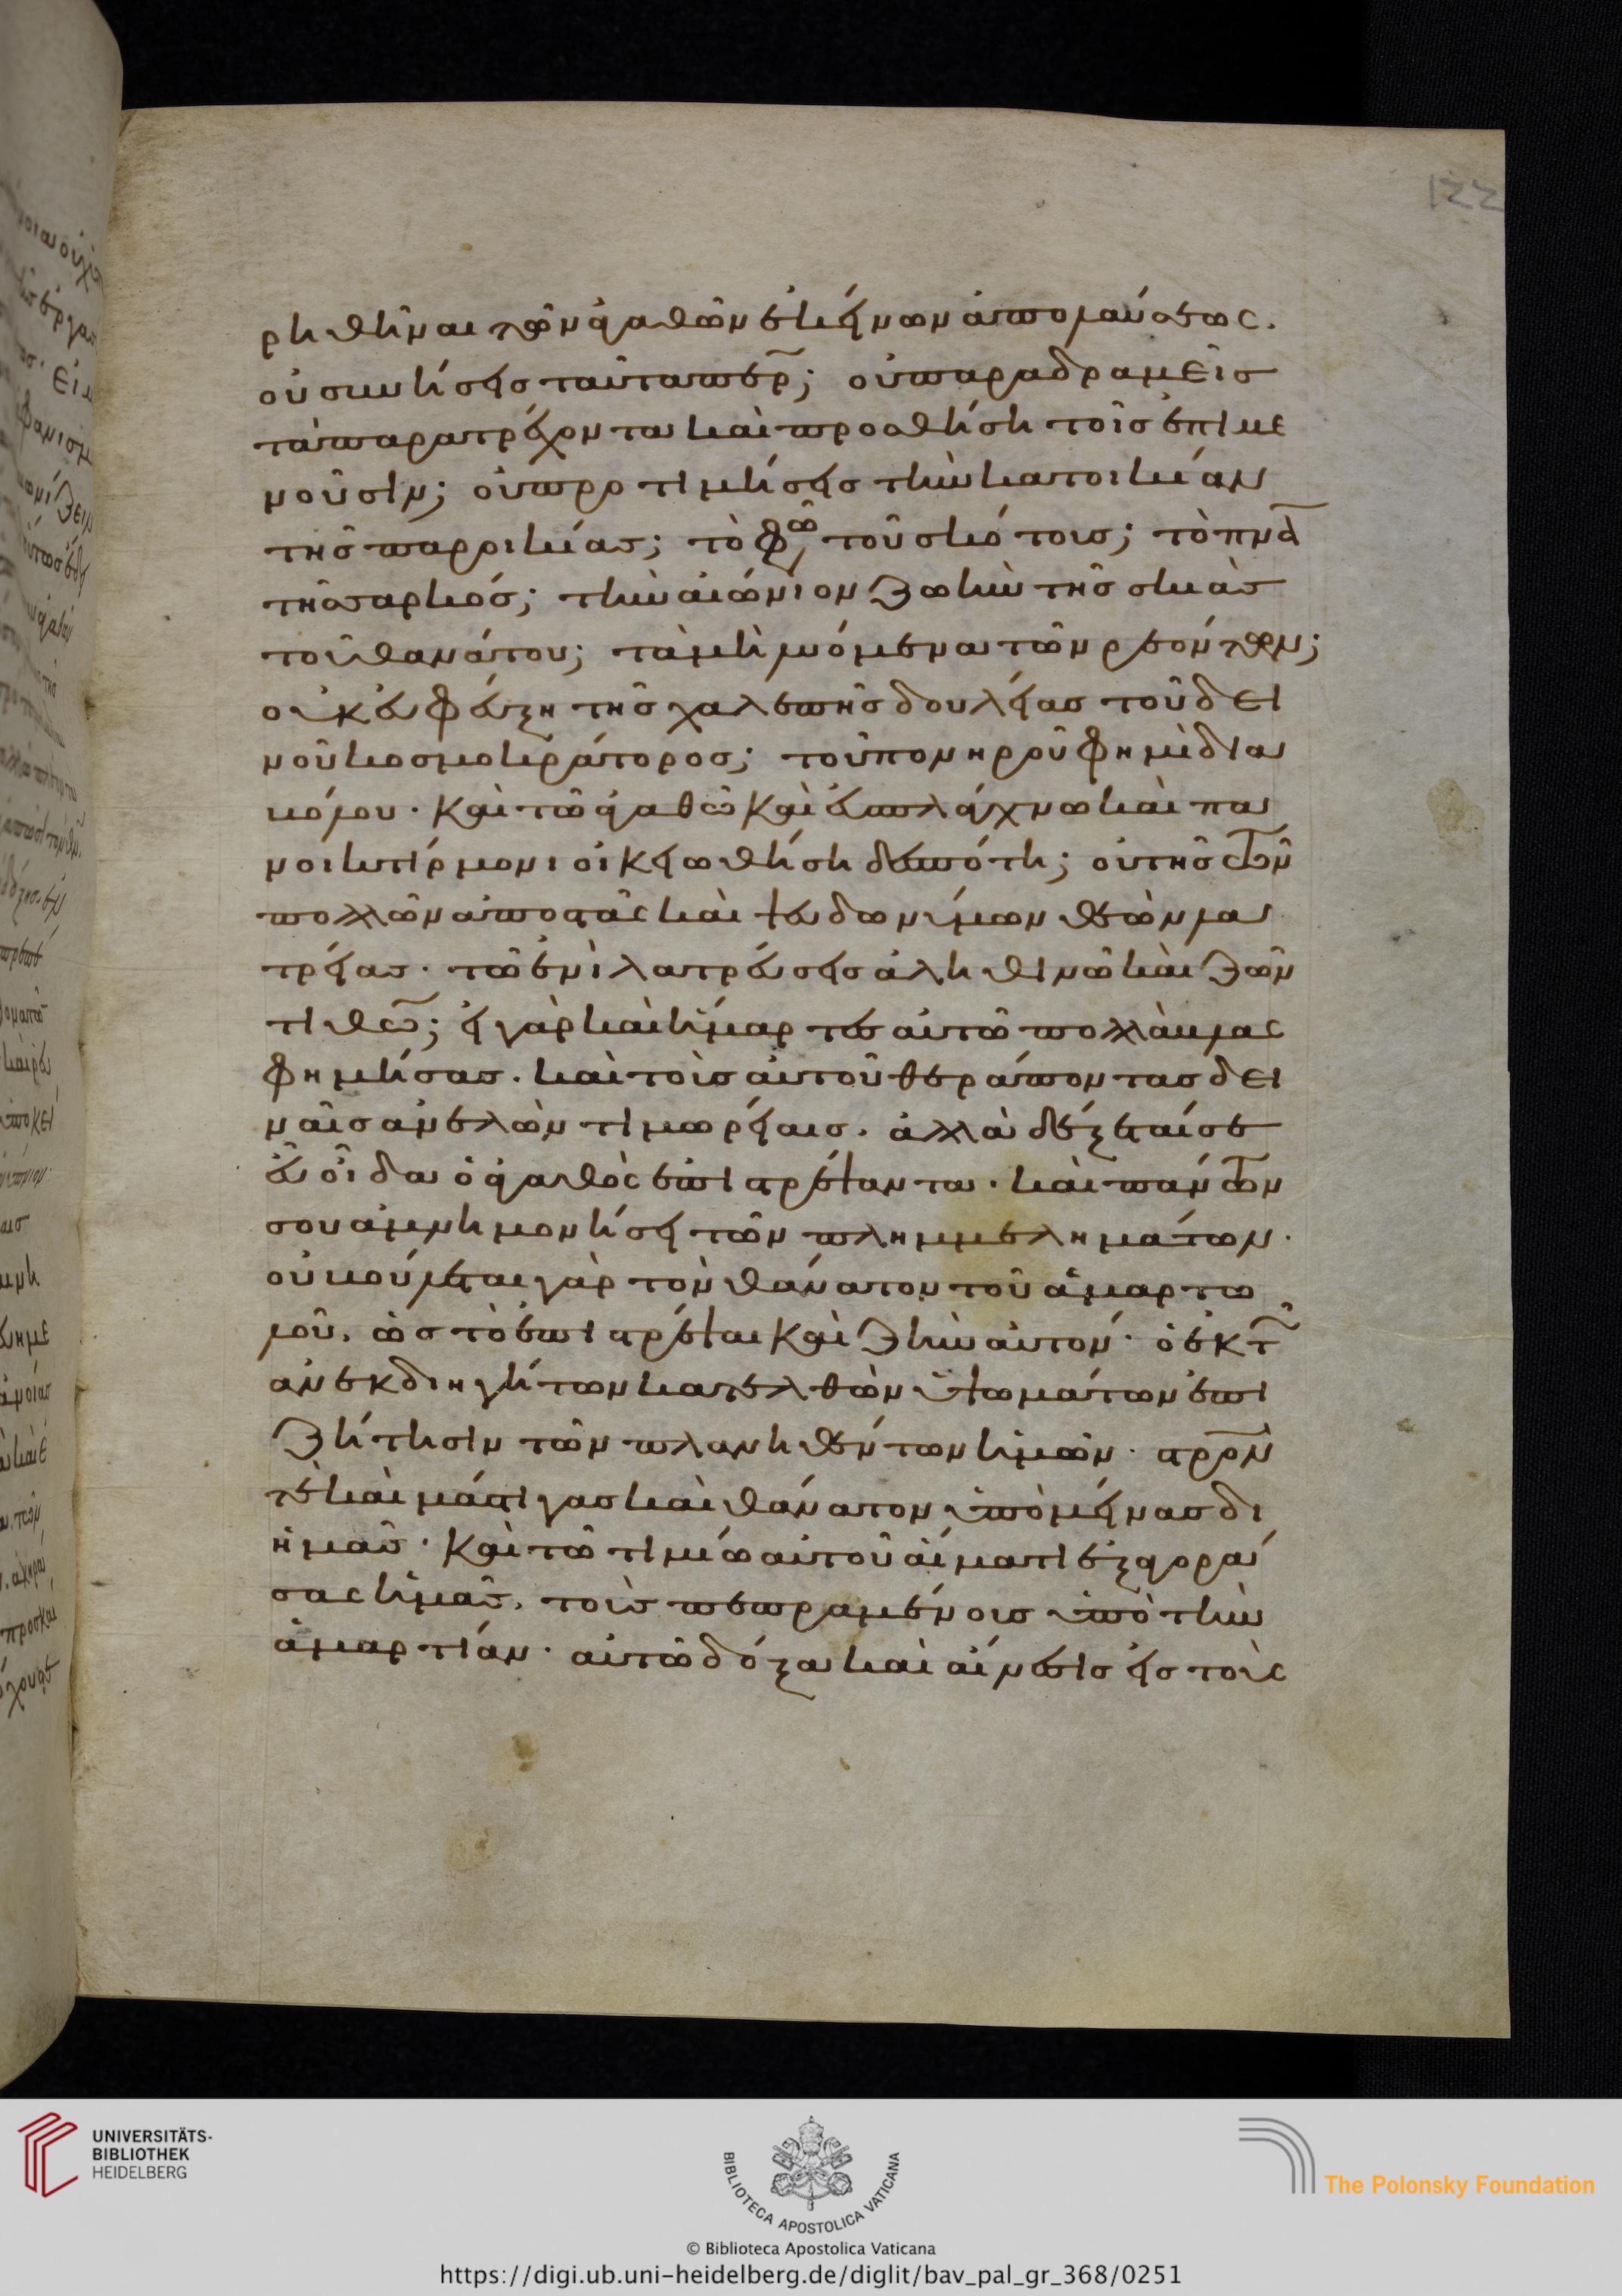 ρηθῆναι τῶν ἀγαθῶν ἐκείνων ἀπολαύσεως.
οὐ συνήσεις ταῦτα περ; οὐ παραδραμεῖς
τὰ παρατρέχοντα καὶ προσθήση τοῖς ἐπιμε
νοῦσιν; οὐ προτιμήσεις τὴν κατοικίαν
τῆς παροικίας; τὸ φῶ τοῦ σκότους; τὸ πνα
τῆς σαρκός; τὴν αἰώνιον ζωὴν τῆς σκιᾶς
τοῦ θανάτου; τὰ μὴ λυόμενα τῶν ρεόντων;
οὐκ ἐκφεύξη τῆς χαλεπῆς δουλείας τοῦ δει
νοῦ κοσμοκράτορος; τοῦ πονηροῦ φημὶ δια
βόλου. καὶ τῶ ἀγαθῶ καὶ εὐσπλάγχνω καὶ πα
νοικτίρμονι οἰκειωθήση δεσπότη; οὐ τῆς τῶν
πολλῶν ἀποστὰς καὶ ψευδωνύμων θεῶν λα
τρείας. τῶ ἑνὶ λατρεύσεις ἀληθινῶ καὶ ζῶν
τι θεῶ; εἰ γὰρ καὶ ἥμαρτες αὐτῶ πολλὰ βλας
φημήσας. καὶ τοὺς αὐτοῦ θεράποντας δει
ναῖς ἀνελὼν τιμωρίαις. ἀλλὰ δέξεταί σε
εὖ οἶδα ὁ ἀγαθὸς ἐπιστρέψαντα. καὶ πάντων
σου ἀμνημονήσει τῶν πλημμελημάτων.
οὐ βούλεται γὰρ τὸν θάνατον τοῦ ἁμαρτω
λοῦ. ὡς τὸ ἐπιστρέψαι καὶ ζῆν αὐτόν. ὁ ἐκ τ
ἀνεκδιηγήτων κατελθὼν ὑψωμάτων ἐπὶ
ζήτησιν τῶν πλανηθέντων ἡμῶν. στρον
τὲ καὶ μάστιγας καὶ θάνατον ὑπομείνας δι
ἡμᾶς. καὶ τῶ τιμίω αὐτοῦ αἵματι ἐξαγορά
σας ἡμᾶς. τοὺς πεπραμένους ὑπὸ τὴν
ἁμαρτίαν. αὐτῶ δόξα καὶ αἴνεσις εἰς τοὺς
122
UNIVERSITÄTS-
BIBLIOTHEK
HEIDELBERG
BIBLIOTECA APOSTOLICA VATICANA
The Polonsky Foundation
© Biblioteca Apostolica Vaticana
https://digi.ub.uni-heidelberg.de/diglit/bav_pal_gr_368/0251